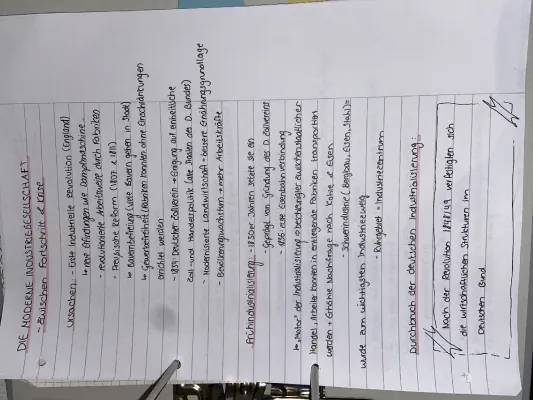 DIE MODERNE INDUSTRIEGESELLSCHAFT
- zwischen Fortschritt & Krise
Ursachen: - Erste Industrielle Revolution (England)
↳ neue Erfindungen wie Dampfmaschine
- revolutionierte Arbeitsweise durch Fabriken
- Preußische Reform (1807 & 1811)
↳ Bauernbefreiung (viele Bauern gehen in Stadt)
↳ Gewerbefreiheit (Fabriken konnten ohne Einschränkungen
errichtet werden
- 1834: Deutscher Zollverein → Einigung auf einheitliche
Zoll- und Handelspolitik (alle Staaten des D. Bundes)
- Modernisierte Landwirtschaft - bessere Ernährungsgrundlage
- Bevölkerungswachstum → mehr Arbeitskräfte
Frühindustrialisierung: - 1830er Jahren setzte sie an
- Geprägt von Gründung des D. Zollvereins
- 1835 erste Eisenbahnverbindung
↳ "Motor" der Industrialisierung → überregionaler
Handel, Arbeiter konnten in entlegende Fabriken transportiert
werden + Erhöhte Nachfrage nach Kohle & Eisen
- Schwerindustrie (Bergbau, Eisen, Stahl) =
wurde zum wichtigsten Industriezweig
- Ruhrgebiet = Industriezentrum
Durchbruch der deutschen Industrialisierung:
Nach der Revolution 1848/49 verfestigten sich
die wirtschaftlichen Strukturen im
Deutschen Bund